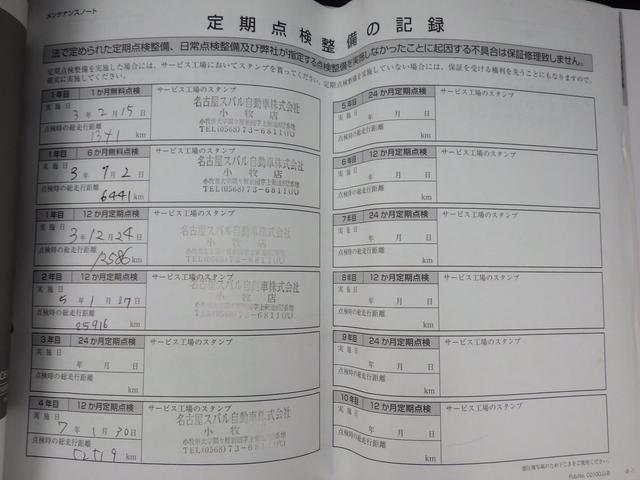 メンテナンスノート
定期点検整備の記録
法で定められた定期点検整備、日常点検整備及び弊社が指定する点検整備を実施しなかったことに起因する不具合は保証修理致しません。
定期点検整備を実施した場合には、サービス工場においてスタンプを貰ってください。定期点検整備を実施していない場合には、保証を受ける権利を失うことにもなりますので、
確実に実施してください。
1年目 1か月無料点検 サービス工場のスタンプ
実施日
3年2月15日
点検時の総走行距離
1341 km
名古屋スバル自動車株式会社
小牧店
TEL(0568)73-6811(代)
1年目 6か月無料点検 サービス工場のスタンプ
実施日
3年7月2日
点検時の総走行距離
6441 km
名古屋スバル自動車株式会社
小牧店
TEL(0568)73-6811(代)
1年目 12か月定期点検 サービス工場のスタンプ
実施日
3年12月24日
点検時の総走行距離
13586 km
名古屋スバル自動車株式会社
小牧店
2年目 12か月定期点検 サービス工場のスタンプ
実施日
5年1月17日
点検時の総走行距離
25916 km
名古屋スバル自動車株式会社
小牧店
3年目 24か月定期点検 サービス工場のスタンプ
実施日
年 月 日
点検時の総走行距離
km
4年目 12か月定期点検 サービス工場のスタンプ
実施日
7年1月30日
点検時の総走行距離
52519 km
名古屋スバル自動車株式会社
小牧
TEL(0568)73-6811(代)
5年目 24か月定期点検 サービス工場のスタンプ
実施日
年 月 日
点検時の総走行距離
km
6年目 12か月定期点検 サービス工場のスタンプ
実施日
年 月 日
点検時の総走行距離
km
7年目 24か月定期点検 サービス工場のスタンプ
実施日
年 月 日
点検時の総走行距離
km
8年目 12か月定期点検 サービス工場のスタンプ
実施日
年 月 日
点検時の総走行距離
km
9年目 24か月定期点検 サービス工場のスタンプ
実施日
年 月 日
点検時の総走行距離
km
10年目 12か月定期点検 サービス工場のスタンプ
実施日
年 月 日
点検時の総走行距離
km